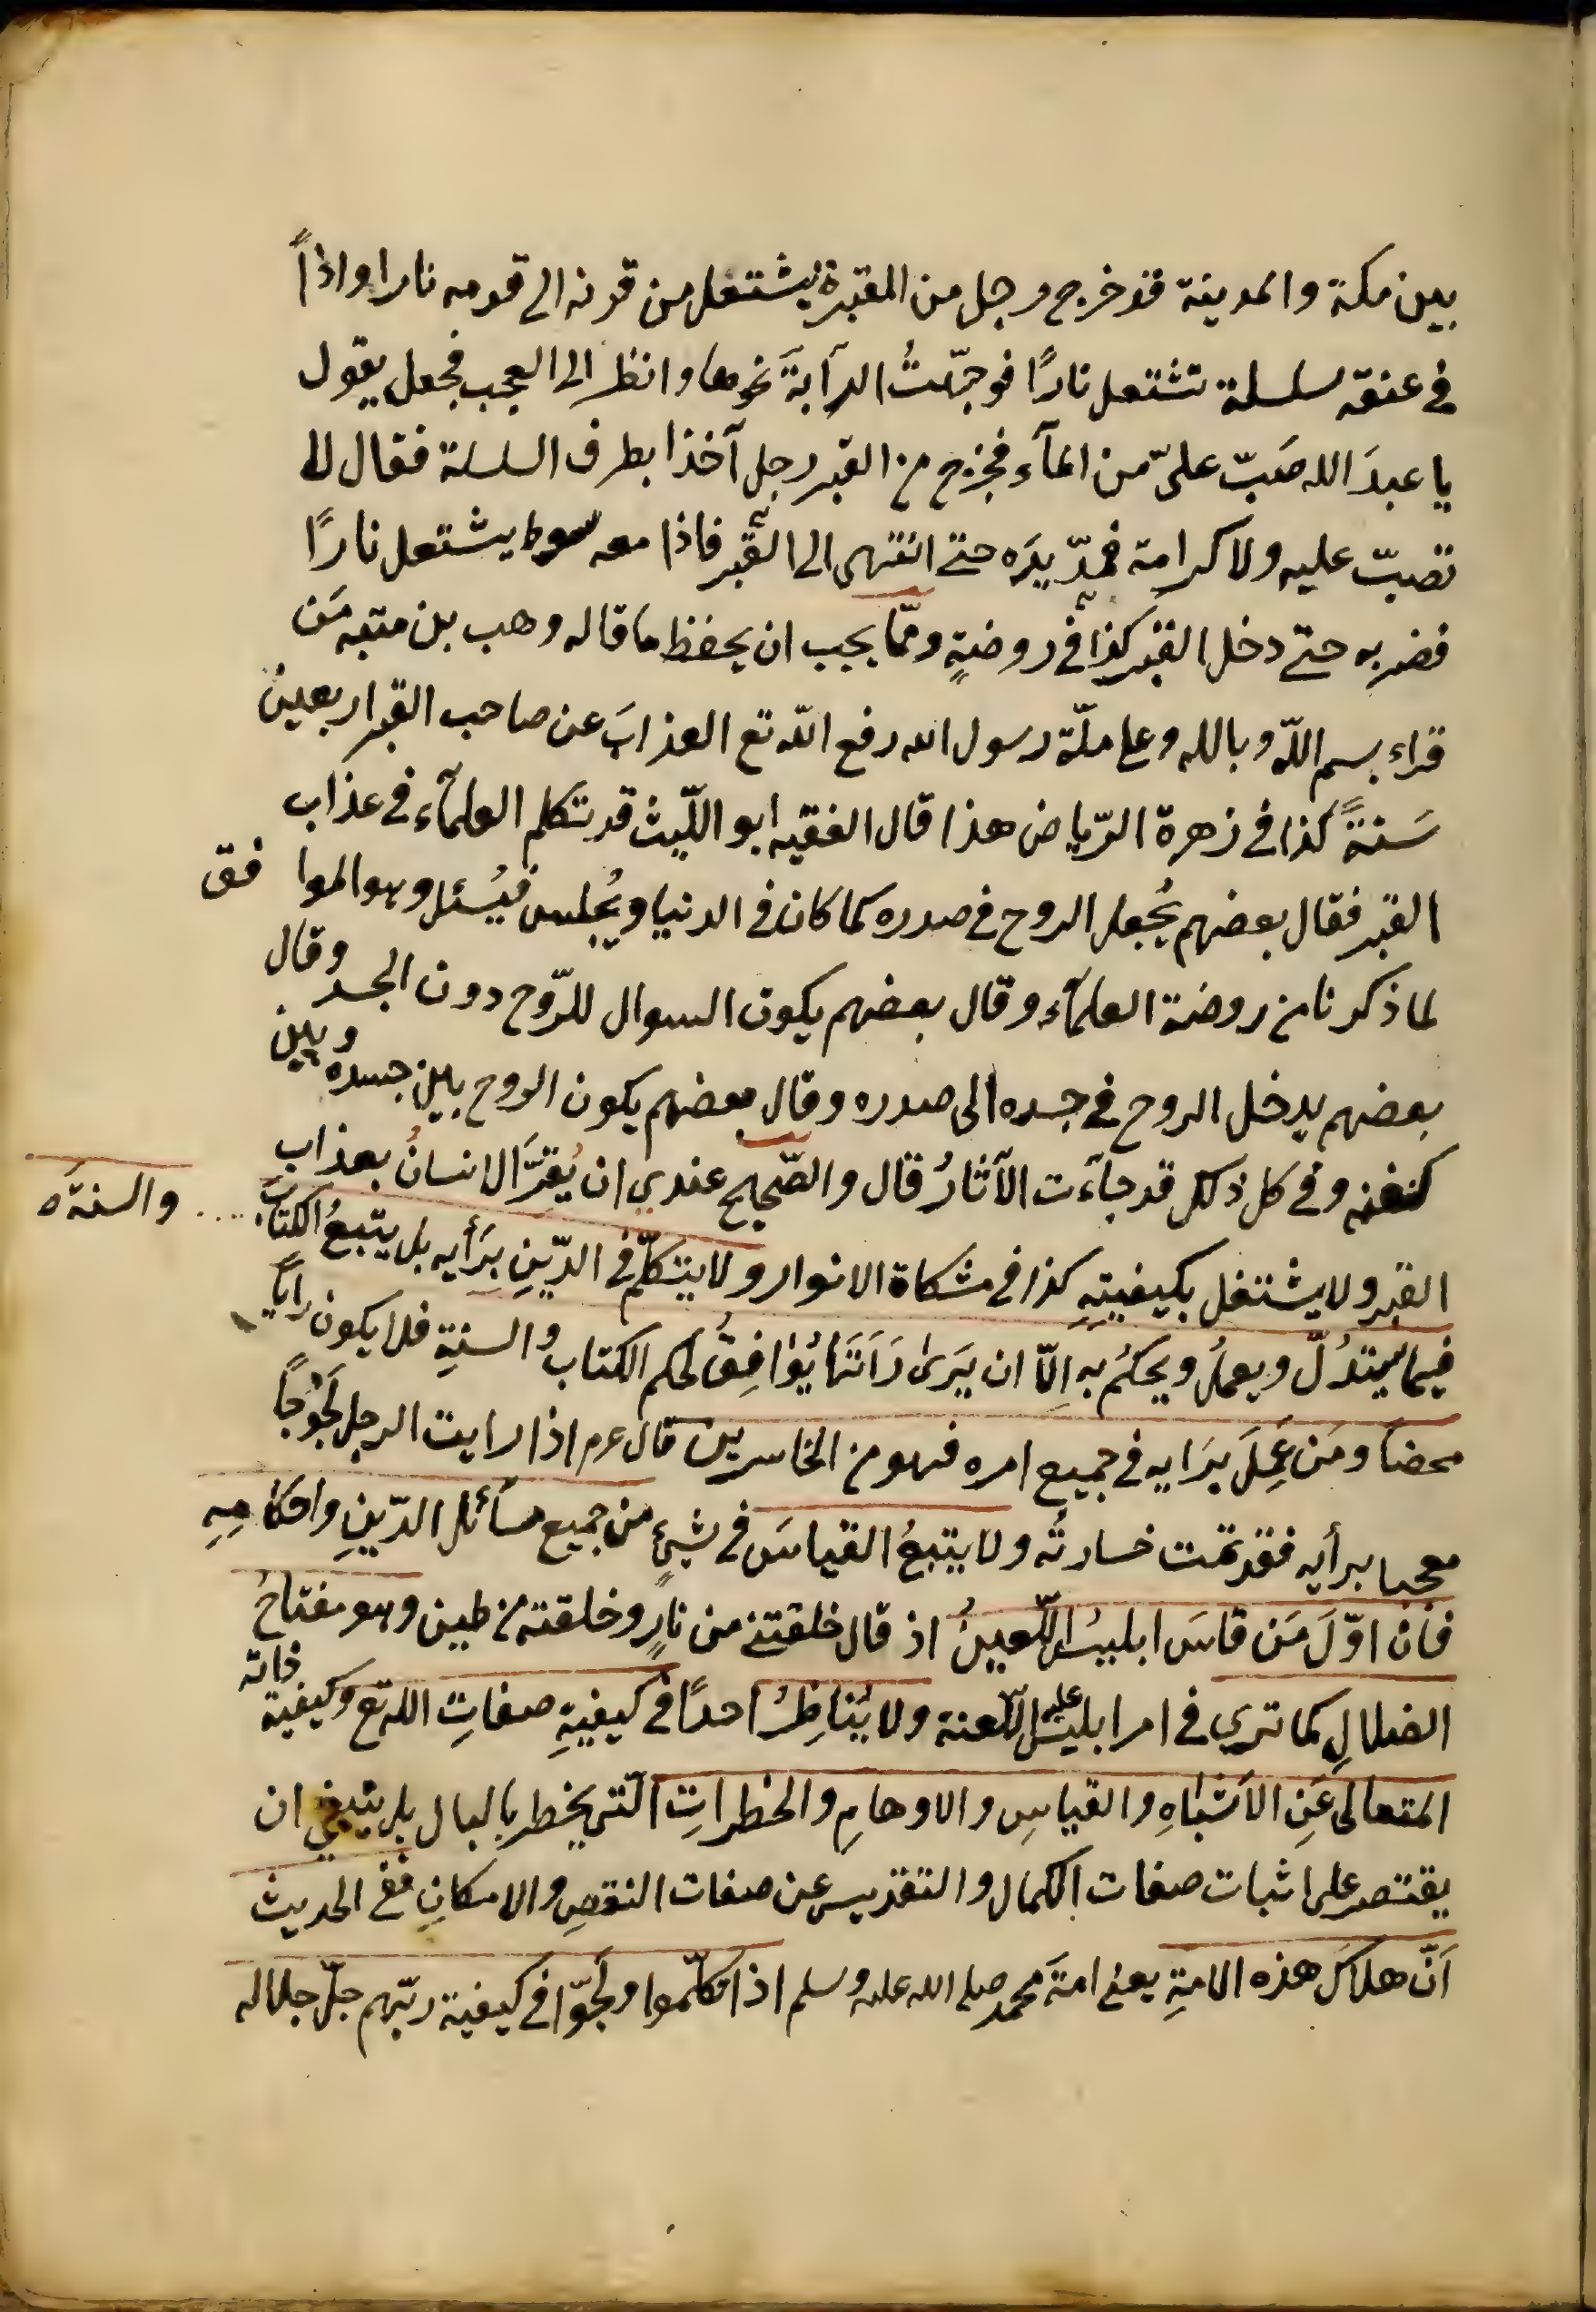 بين مكة والمدينة قد خرج رجل من المقبرة يشتعل من قرنه الى قدمه نارا واذاً
في عنقه سلسلة تشتعل نارًا فوجّهتُ الدآبةَ نحوها وانظر الى العجب فجعل يقول
يا عبدَ الله صَبّ علىّ من المآء فخرج من القبر رجل آخذا بطرف السلسلة فقال لا
تصبّ عليه ولا كرامة فمدّ يدَه حتى انتهى الى القبر فاذا معه سوط يشتعل نارًا
فضربه حتى دخل القبر كذا في روضةٍ وممّا يجب ان يحفظ ما قاله وهب بن منبه مَن
قراء بسم اللّه وبالله وعلى ملّة رسول الله رفع اللّه تع العذابَ عن صاحب القبر اربعين
سَنةً كذا في زهرة الرّياض هذا قال الفقيه ابو اللّيث قد تكلم العلمآء في عذاب
القبر فقال بعضهم يُجعل الروح في صدره كما كان في الدنيا ويُجلس فيُسئل وهو الموافق
لما ذكرنا من روضة العلمآء وقال بعضهم يكون السوال للرّوح دون الجسد وقال
بعضهم يدخل الروح في جسده الى صدره وقال بعضهم يكون الروح بين جسده وبين
كفنه وفي كل ذلك قد جآءت الآثارُ قال والصّحيح عندي ان يُقرَّ الانسانُ بعذاب
القبر ولا يشتغل بكيفيتِهِ كذا في مشكاة الانوار ولا يتكلّم في الدّينِ برَأيه بل يتبعُ الكتابَ والسنةَ
فيما يستدلّ ويعملُ ويحكمُ به اِلّا ان يَرىٰ رَاَتَها يُوٰافِقُ لحكم الكتاب والسنةِ فلا يكون راياً
محضاً ومَن عَمِلَ برَايه في جميع امره فهو من الخاسرين قال عم اذا رايت الرجل لَجُوجًا
معجبا برأيه فقد تمت خسارتُه ولا يتبعُ القياسَ في شيئٍ من جميع مسآئل الدّينِ واحكامِهِ
فان اوّلَ مَن قاسَ ابليسُ اللّعينُ اذ قال خلقتنى من نارٍ وخلقته من طين وهو مفتاحُ
الضلالِ كما ترى في امر ابليس عليه اللّعنة ولا يُناظِرُ احدًا في كيفيةِ صفاتِ الله تع وكيفية ذاته
المتعالى عَنِ الاَشْبٰاهِ والقياسِ والاوهامِ والخطراتِ الّتى يخطر بالبال بل ينبغي ان
يقتصر على اثبات صفات الكمال والتقديس عن صفات النقصِ والامكانِ ففي الحديث
اَنّ هلاكَ هذه الامةِ يعنى امةَ محمد صلى الله عليه وسلم اذا تكلّموا ولَجّوا في كيفية ربّهم جلّ جلاله